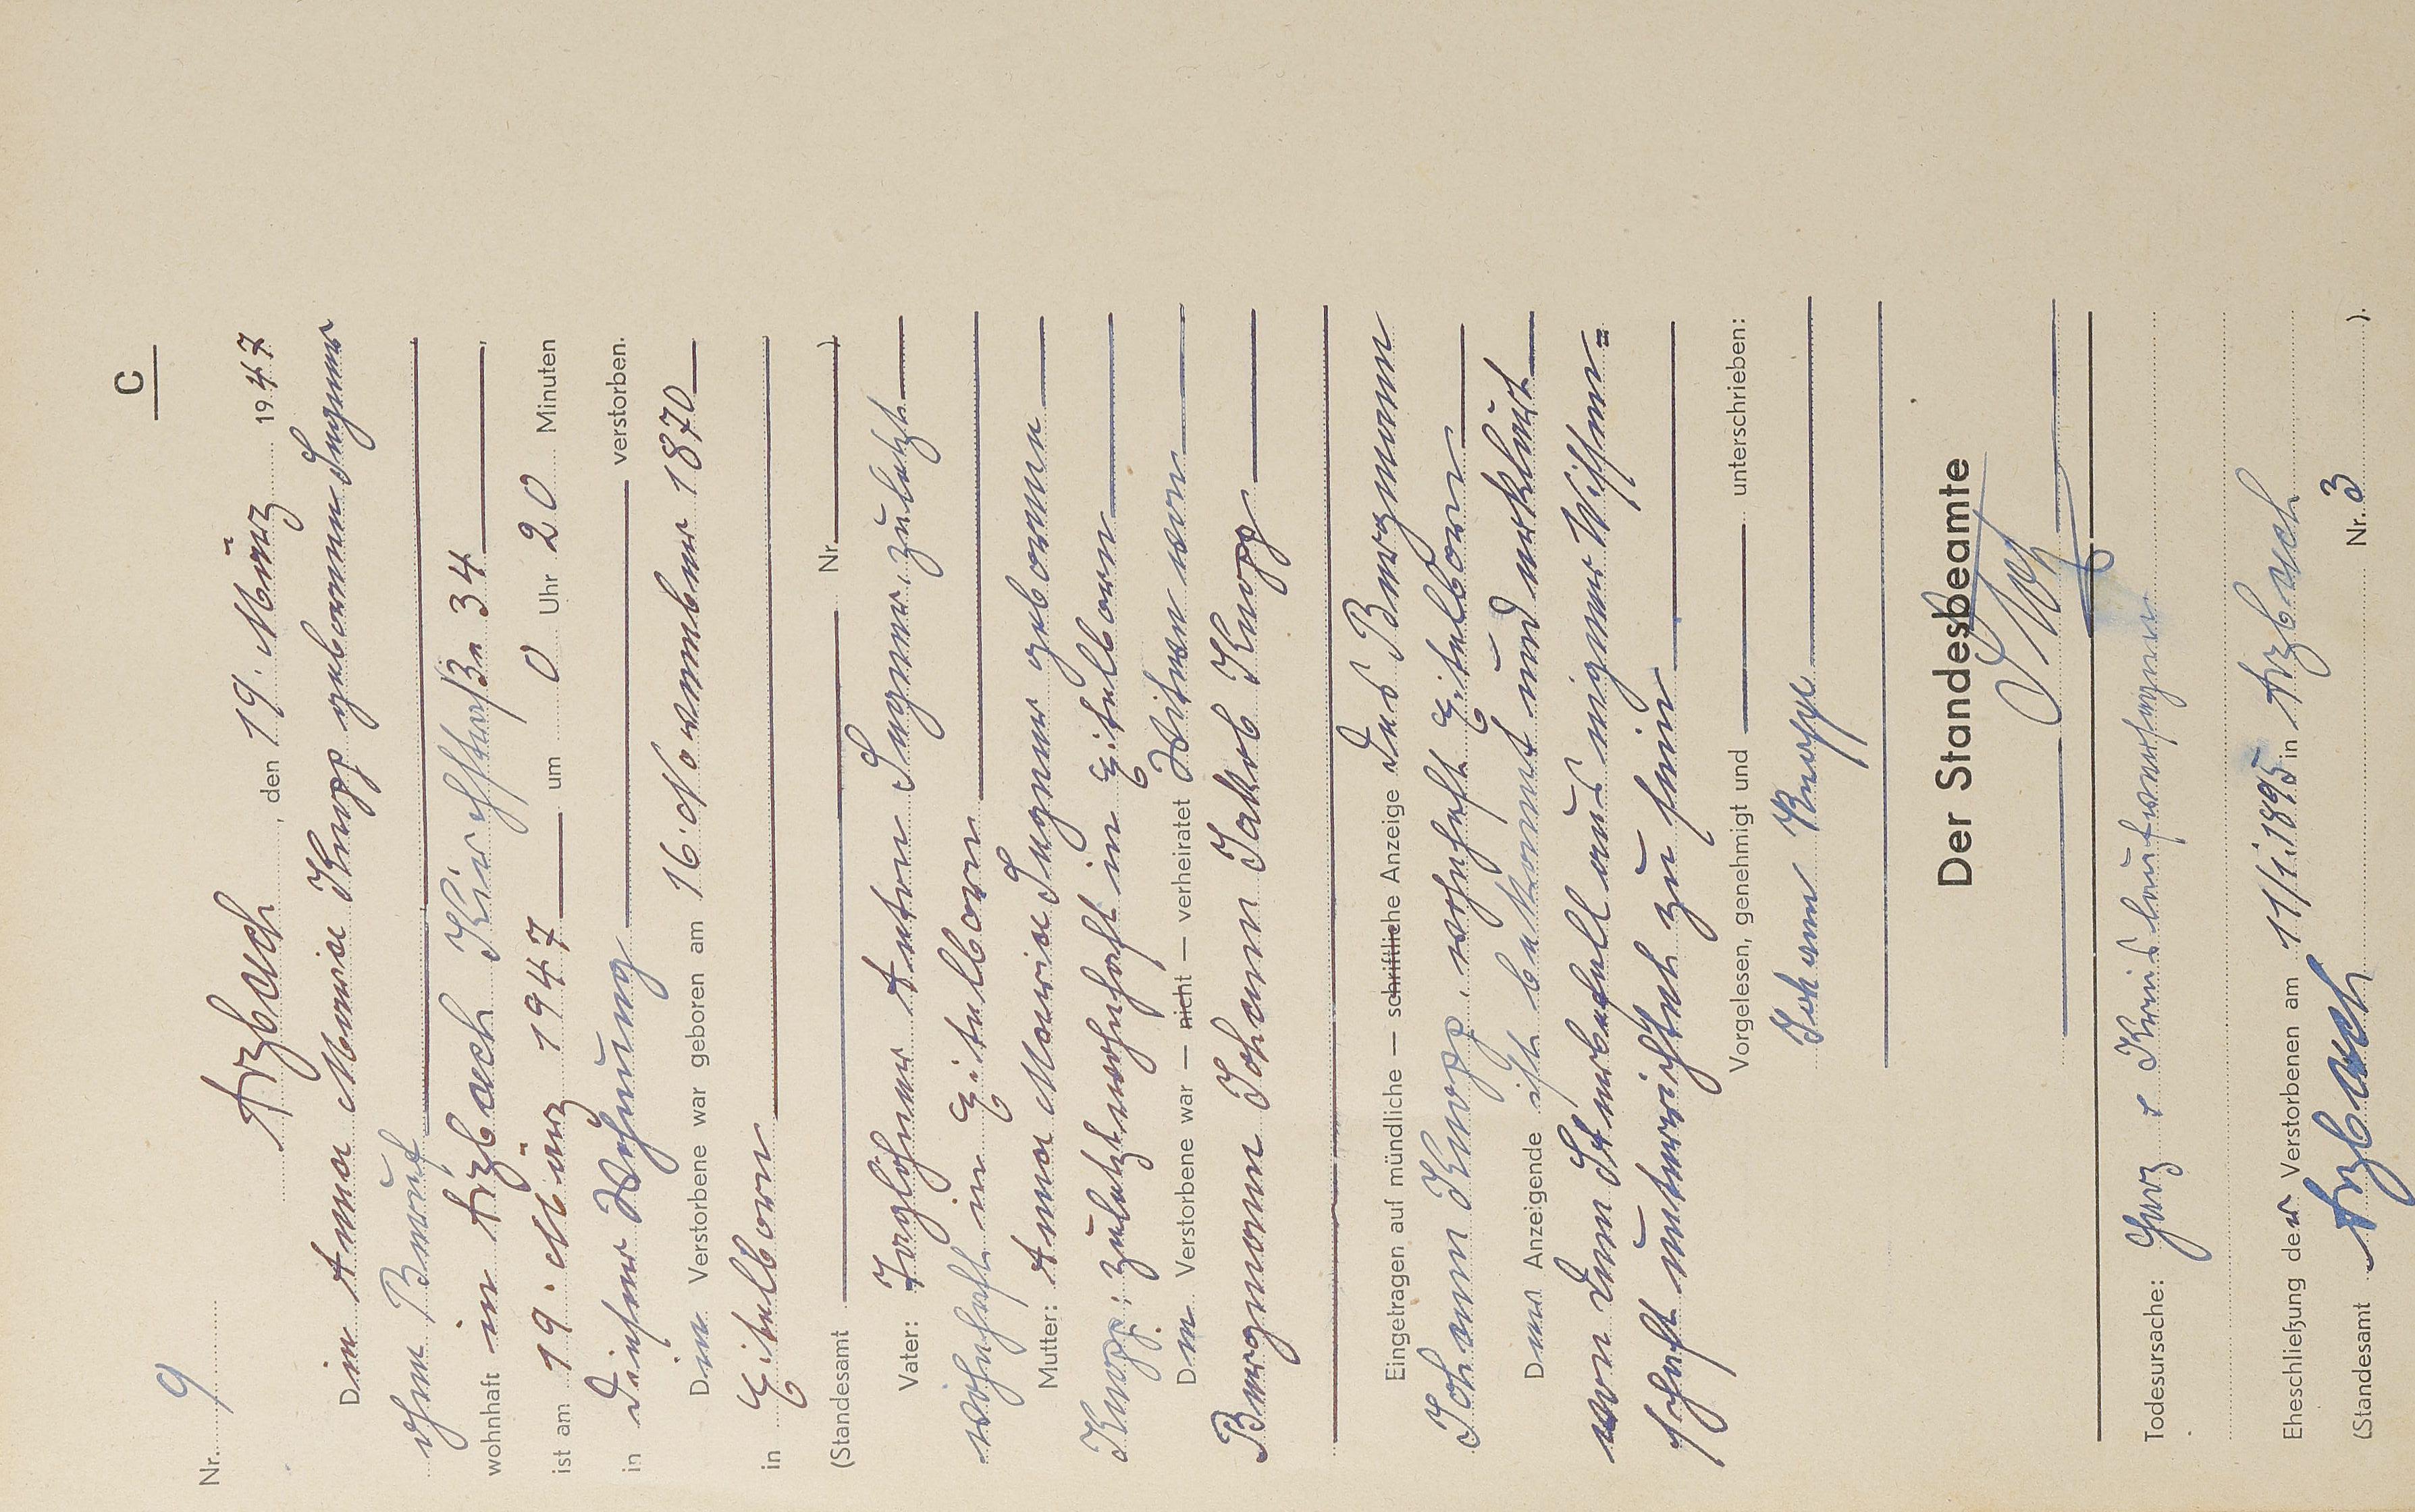 C
Nr. 9
Arzbach, den 19. März 1947
Die Anna Maria Knopp geborene Sugener
ohne Beruf
wohnhaft in Arzbach Kirchstraße 34
ist am 19. März 1947 um 0 Uhr 20 Minuten
in dieser Wohnung verstorben.
Die Verstorbene war geboren am 16. November 1870
in Eitelborn
(Standesamt Nr. )
Vater: Taglöhner Anton, zuletzt
wohnhaft in Eitelborn
Mutter: Anna Maria geborene
Knopp, zuletzt wohnhaft in Eitelborn
Die Verstorbene war — nicht — verheiratet Witwe von
Bergmann Johann Jakob Knopp
Eingetragen auf mündliche — schriftliche Anzeige des Bergmann
Johann Knopp, wohnhaft Eitelborn
Der Anzeigende ist bekannt und erklärt
von dem Sterbefall aus eigener Wissen=
schaft unterrichtet zu sein
Vorgelesen, genehmigt und unterschrieben:
Johann Knopp
Der Standesbeamte
Todesursache: Herz Kreislaufversagen
Eheschließung der Verstorbenen am 11/1.1895 in Arzbach
(Standesamt Arzbach Nr. 3 ).